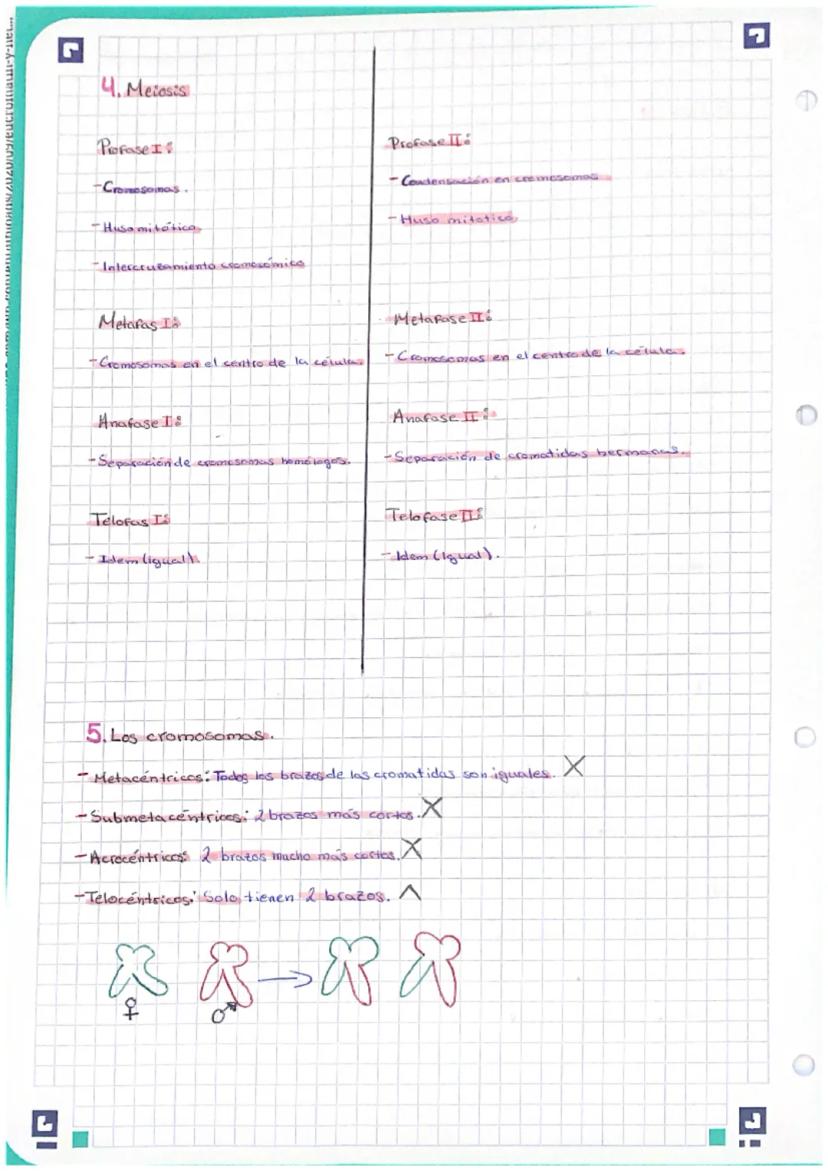 4. Meiosis
Profase I:
- Cromosomas.
- Huso mitótico
- Intercruzamiento cromosómico
Metafas I:
- Cromosomas en el centro de la célula.
Anafase I:
- Separación de cromosomas homólogos.
Telofas I:
- Idem (igual).
Profase II:
- Condensación en cromosomas
- Huso mitotico
Metafase II:
- Cromosomas en el centro de la célula.
Anafase II:
- Separación de cromatidas hermanas.
Telofase II:
- Idem (Igual).
5. Los cromosomas.
- Metacéntricos: Todos los brazos de las cromatidas son iguales.
- Submetacéntricos: 2 brazos más cortos.
- Acrocéntricos: 2 brazos mucho más cortos.
- Telocéntricos: Solo tienen 2 brazos.
♀ ♂